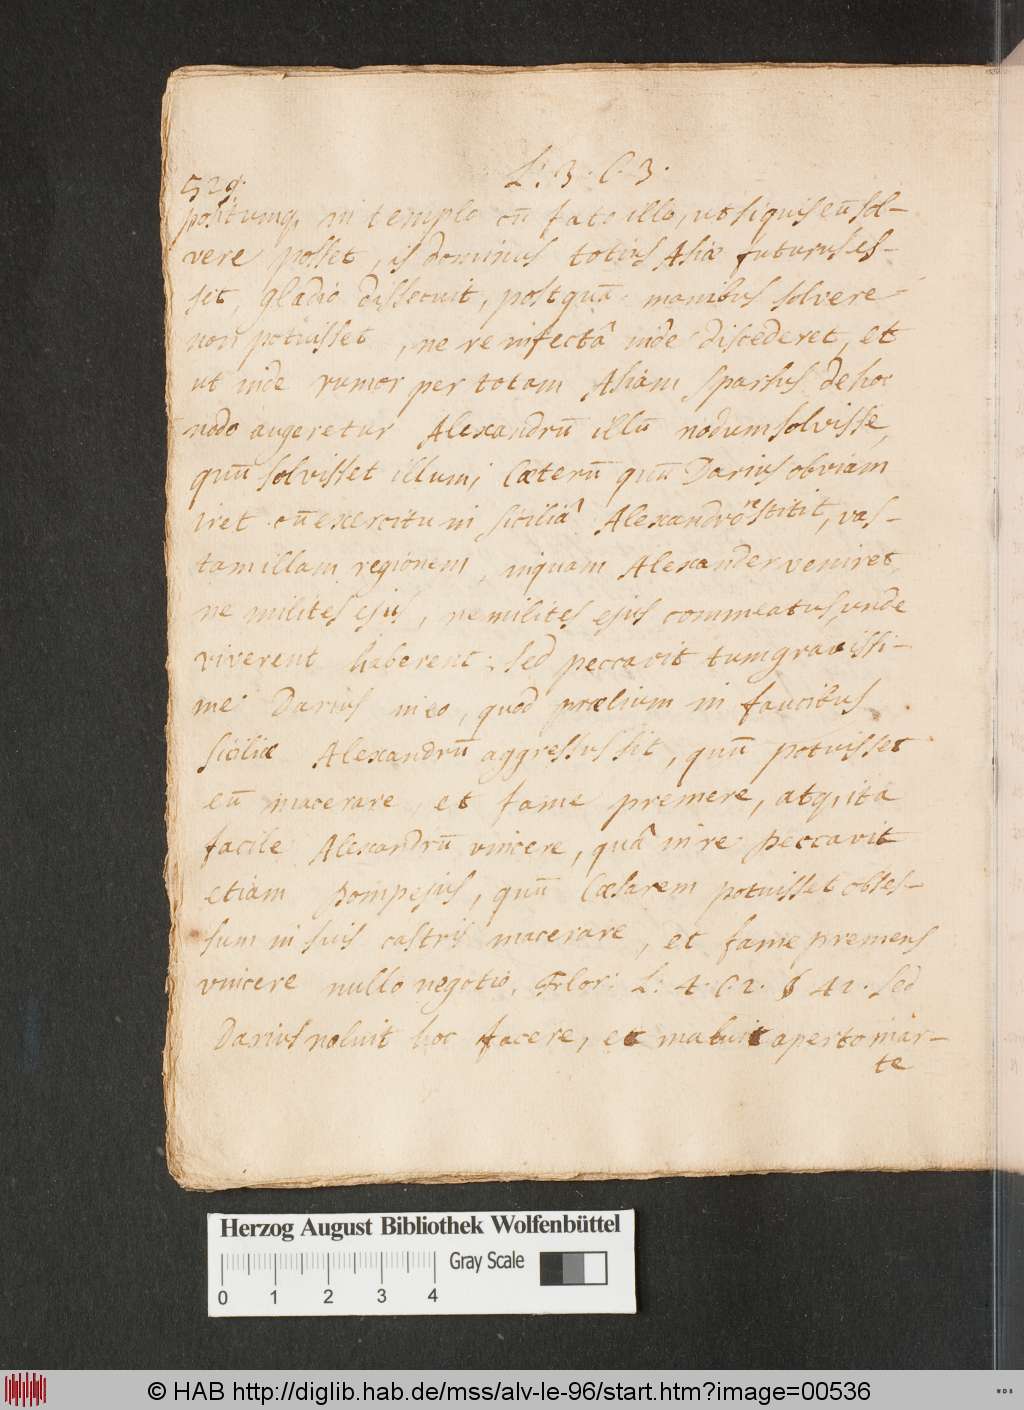 L: 3. C. 3.
529.
positumq, in templo cū fato illo, ut siquis eū sol-
vere posset, is dominus totius Asiæ futurus es-
set, gladio dissecuit, postquā manibus solvere
non potuisset, ne re infectâ inde discederet, et
ut inde rumor per totam Asiam sparsus de hoc
nodo augeretur Alexandrū illū nodum solvisse,
quū solvisset illum; Cæterū quū Darius obviam
iret cū exercitu in Siciliâ Alexandro restitit, vas-
tam illam regionem, inquam Alexander veniret,
ne milites ejus, ne milites ejus commeatus, unde
viverent haberent; sed peccavit tum gravissi-
me Darius in eo, quod prælium in faucibus
Siciliæ Alexandrū aggressus sit, quū potuisset
eū macerare, et fame premere, atq, ita
facile Alexandrū vincere, quâ in re peccavit
etiam Pompejus, quū Cæsarem potuisset obses-
sum in suis castris macerare, et fame premens
vincere nullo negotio, Flor: L: 4. C. 2. § 42. sed
Darius noluit hoc facere, et maluit aperto mar-
te
Herzog August Bibliothek Wolfenbüttel
Gray Scale
0 1 2 3 4
© HAB http://diglib.hab.de/mss/alv-le-96/start.htm?image=00536